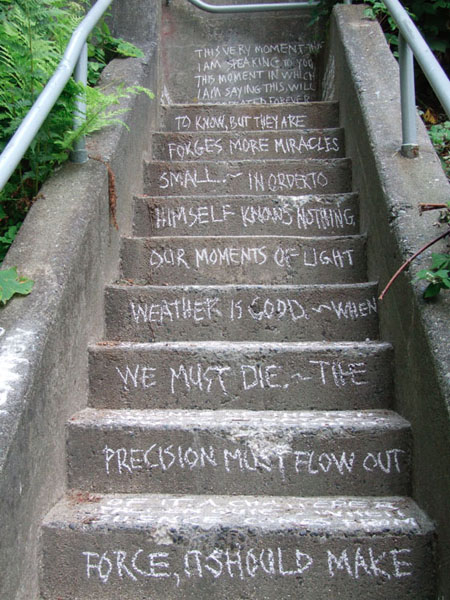 THIS VERY MOMENT
I AM SPEAKING TO YOU
THIS MOMENT IN WHICH
I AM SAYING THIS, WILL
REPEATED FOREVER
TO KNOW, BUT THEY ARE
FORGES MORE MIRACLES
SMALL. ~ IN ORDER TO
HIMSELF KNOWS NOTHING
OUR MOMENTS OF LIGHT
WEATHER IS GOOD. ~ WHEN
WE MUST DIE. ~ THE
PRECISION MUST FLOW OUT
FORCE, IT SHOULD MAKE